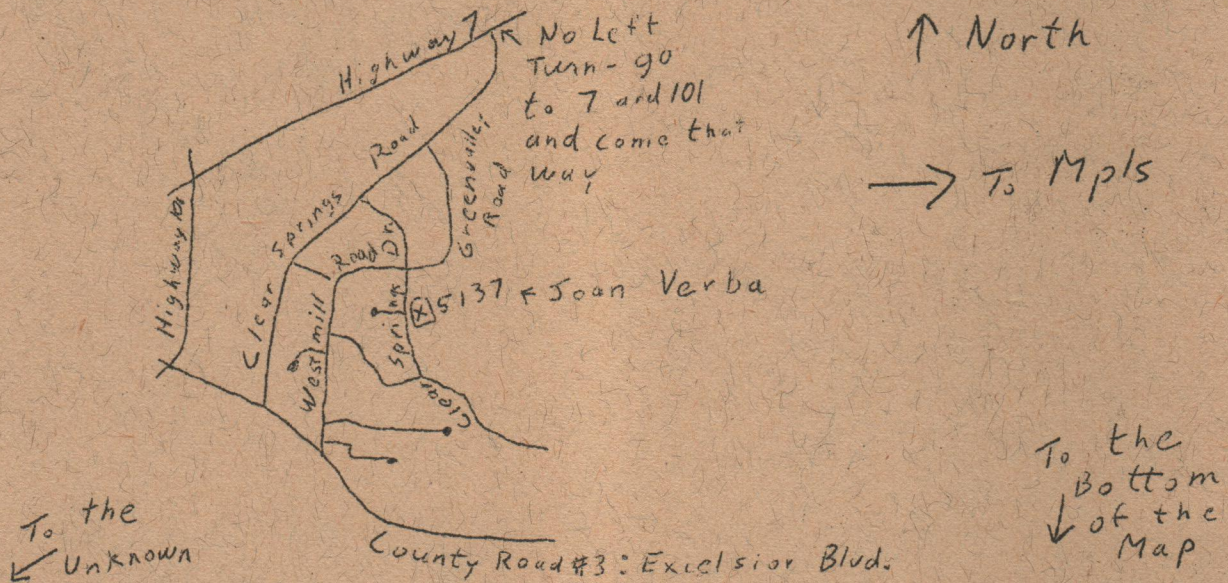 Highway 7
No Left
Turn - go
to 7 and 101
and come that
way
↑ North
→ To Mpls
Highway 101
Clear Springs Road
Greenvalley
Road
Westmill Road
Clear Springs Dr.
X 5137 ← Joan Verba
To the
Unknown
To the
Bottom
of the
Map
County Road #3: Excelsior Blvd.